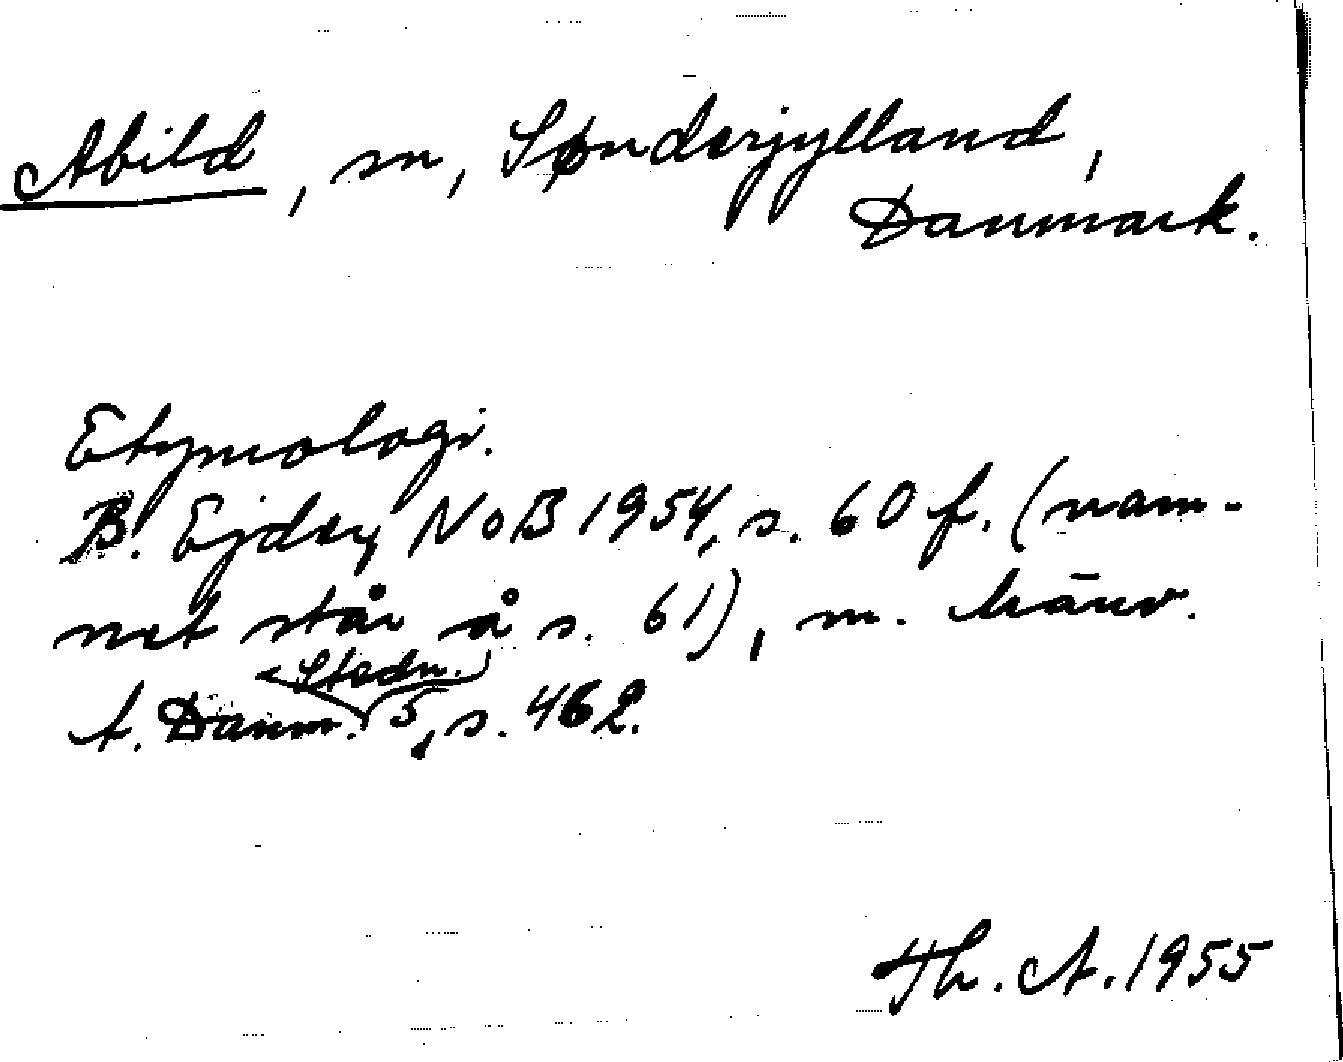 Abild, sn, Sønderjylland,
Danmark.
Etymologi.
B. Ejder, NoB 1954, s. 60 f. (nam-
net står å s. 61), m. hänv.
t. Danm. Stedn. 5, s. 462.
Th. A. 1955